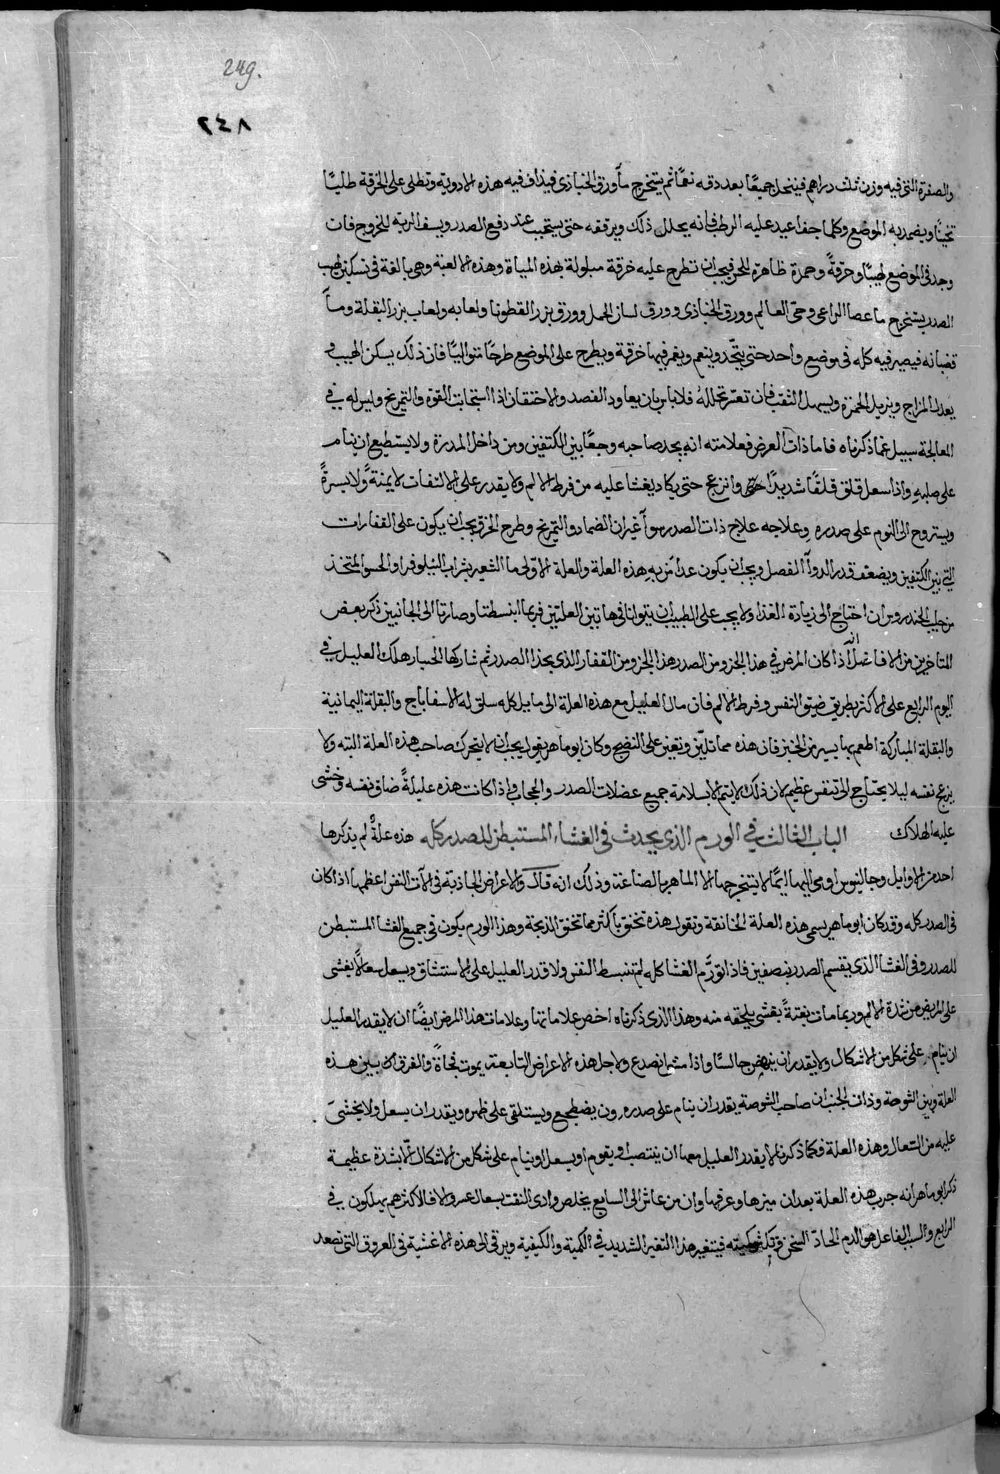 249.
٢٤٨
والصفرة التى فيه وزن ثلث دراهم فينخل جميعًا بعد دقه نعمًا ثم يتخرج مآ ورق الخبازى فيذاف فيه هذه الادوية وتطلى على الخرقة طليًا
ثخينًا ويضمد به الموضع وكلما جف اعيد عليه الرطب فانه يحلل ذلك ويرققه حتى يستجيب عند دفع الصدر ويسف الريه للخروج فان
وجد فى الموضع لهيبًا وحرقةً وحمرة ظاهرة للحس فيجب ان تطرح عليه خرقة مبلولة بهذه المياة وهذه الالعبة وهى بالغة فى تسكين لهيب
الصدر يستخرج ما عصا الراعى وحى العالم وورق الخبازى وورق لسان الحمل وورق بزر القطونا ولعابه ولعاب بزر البقلة ومآ
قضبانه فيصير فيه كله فى موضع واحد حتى يتحد وينعم ويغمر فيها خرقة ويطرح على الموضع طرحًا متواليًا فان ذلك يسكن الهيب و
يعدل المزاج ويزيل الحمرة ويسهل النفث فان تعسّر تحلله فلا باس بان يعاود الفصد والاحتقان اذا استجابت القوة والتمريخ وليس له فى
المعالجة سبيل عما ذكرناه فاما ذات العرض فعلامته انه يجد صاحبه وجعًا بين الكتفين ومن داخل المدرزة ولا يستطيع ان ينام
على صلبه واذا سعل قلق قلقًا شديدًا وانزعج حتى يكاد يغشا عليه من فرط الالم ولا يقدر على الالتفات لا يمنةً ولا يسرةً
ويستروح الى النوم على صدره وعلاجه علاج ذات الصدر سوآ غير ان الضماد والتمريخ وطرح الخرق يجب ان يكون على الفقارات
التى بين الكتفين ويضعف قدر الدوآ المفصل ويجب ان يكون غدا من به هذه العلة والعلة الاولى ما الشعير بشراب النيلوفر او الحسو المتخذ
من حليب الخندروس ان احتاج الى زيادة الغذا ولا يجب على الطبيب ان يتوانا فى هاتين العلتين فربما انبسطتا وصارتا الى الجانبين ذكر بعض
المتاخرين من الافاضل انه اذا كان المرض فى هذا الجزو من الصدر هذا الجزو من الفقار الذى بحذا الصدر ثم شاركها الحجاب هلك العليل فى
اليوم الرابع على الاكثر بطريق ضيق النفس وفرط الالم فان مال العليل مع هذه العلة الى ما يا كله سلق له الاسفاناج والبقلة اليمانية
والبقلة المباركة اطعم بها يسير من الخبز فان هذه مما تليّن وتعين على النضج وكان ابو ماهر يقول يجب ان لا يتحرك صاحب هذه العلة البتة ولا
يزعج نفسه ليلا يحتاج الى تنفس عظيم لان ذلك لا يتم الا بسلامة جميع عضلات الصدر والحجاب واذا كانت هذه عليلةً ضاق نفسه وخشى
عليه الهلاك الباب الثالث فى الورم الذى يحدث فى الغشاء المستبطن للصدر كله هذه علةٌ لم يذكرها
احد من الاوايل وجالينوس اومى اليها ايمًا لا يستخرجها الا الماهر بالصناعة وذلك انه قال والاعراض الحاذبة فى آلات النفس اعظمها اذا كان
فى الصدر كله وقد كان ابو ماهر يسمى هذه العلة الخانقة وتقول هذه تخنق باكثر مما تخنق الذبحة وهذا الورم يكون فى جميع الغشا المستبطن
للصدر وفى الغشا الذى يقسم الصدر بنصفين فاذا تورّم الغشا كله لم تنبسط النفس ولا قدر العليل على الاستنشاق ويسعل سعالًا يغشى
على المريض من شدة الالم وربما مات بغتةً بغشى يلحقه منه وهذا الذى ذكرناه اخص علاماتها وعلامات هذا المرض ايضًا ان لا يقدر العليل
ان ينام على شكل من الاشكال ولا يقدر ان ينهض جالسًا واذا مشا انصدع ولاجل هذه الاعراض التابعة يموت فجاةً والفرق الا بين هذه
العلة وبين الشوصة وذات الجنب ان صاحب الشوصة يقدر ان ينام على صدره ون يضطجع ويستلقى على ظهره ويقدر ان يسعل ولا يخشى
عليه من السعال وهذه العلة فكما ذكرنا لا يقدر العليل معها ان ينتصب او يقوم او يسعل او ينام على شكل من الاشكال الا بشدة عظيمة
ذكر ابو ماهر انه جرب هذه العلة بعد ان ميزها وعرفها وان من عاش الى السابع يخلص وادى النفث بسعال عسر والا فالاكثر هم يهلكون فى
الرابع والسبب الفاعل هو الدم الحاد السخن فيتغير هذا التغير الشديد فى الكمية والكيفية ويرقى الى هذه الاغشية فى العروق التى تصعد